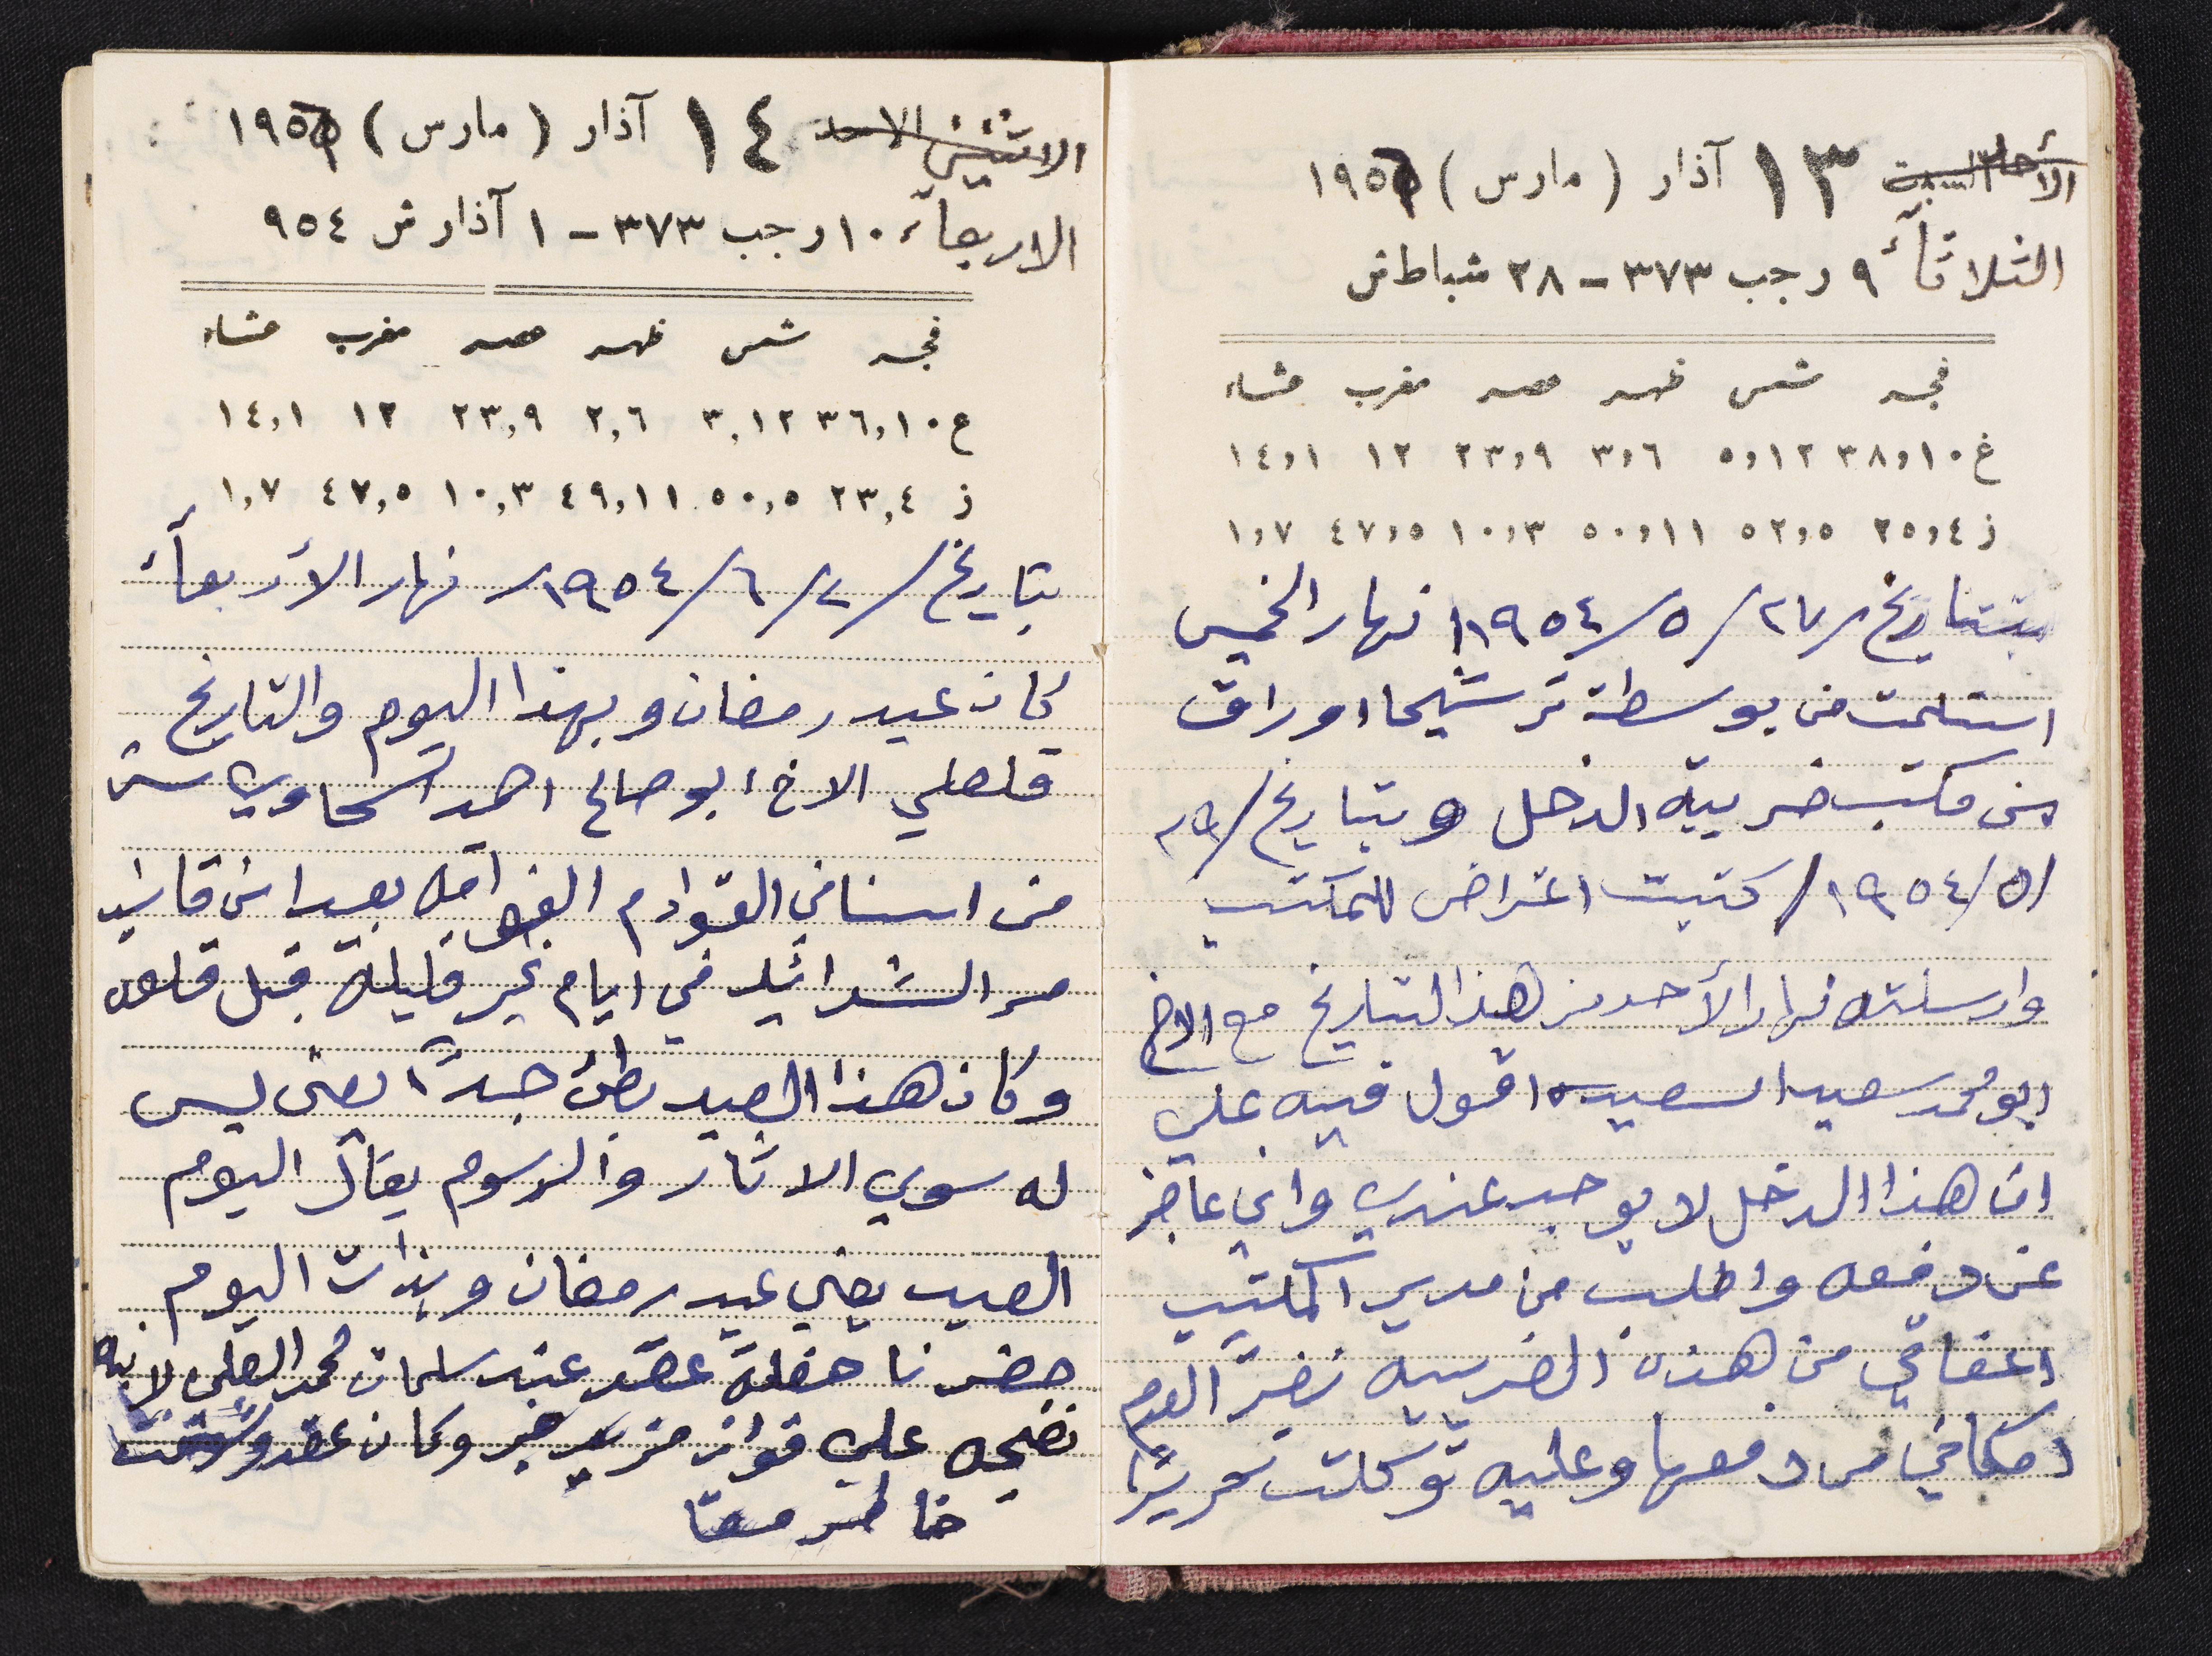 الأحد السبت ١٣ آذار ( مارس ) ١٩٥٦
الثلاثاء ٩ رجب ٣٧٣ - ٢٨ شباط ش
فجر شمس ظهر عصر مغرب عشاء
غ ٣٨,١٠ ٥,١٢ ٣,٦ ٢٣,٩ ١٢ ١٤,١
ز ٢٥,٤ ٥٢,٥ ٥٠,١١ ١٠,٣ ٤٧,٥ ١,٧
بتتاريخ / ٢٧ / ٥ / ١٩٥٤ نهار الخميس
استلمت من بوسطة ترشيحا اوراق
من مكتب ضريبة الدخل وبتاريخ / ٢٩
/ ٥ / ١٩٥٤ / كتبت اعتراض للمكتب
وارسلته نهار الأحد من هذا التاريخ مع الاخ
ابو محمد سعيد السعيد اقول فيه علي
ان هذا الدخل لا يوجد عندي واني عاجز
عن دفعه واطلب من مدير المكتب
اعفائي من هذه الضريبه نضرً العدم
امكاني من دفعها وعليه توكلت
الاثنين الاحد ١٤ آذار ( مارس ) ١٩٥٦
الاربعاء ١٠ رجب ٣٧٣ - ١ آذار ش ٩٥٤
فجر شمس ظهر عصر مغرب عشاء
غ ٣٦,١٠ ٣,١٢ ٢,٦ ٢٣,٩ ١٢ ١٤,١
ز ٢٣,٤ ٥٠,٥ ٤٩,١١ ١٠,٣ ٤٧,٥ ١,٧
بتاريخ / ٢ / ٦ / ١٩٥٤ نهار الأربعاء
كان عيد رمضان وبهذا اليوم والتاريخ
قلعلي الاخ ابو صالح احمد سن
من اسناني القوادم بعد ان قاسيت
مر الشدائد في ايام غير قليلة قبل قلعه
وكان هذا العيد بطئ جدًا يعني ليس
له سوي الاثار والرسوم يقال اليوم
العيد يعني عيد رمضان وبذات اليوم
حضرنا حفلة عقد عند سلمان محمد العلي لابنه
علي فواز وكان عقد
خاطر معا